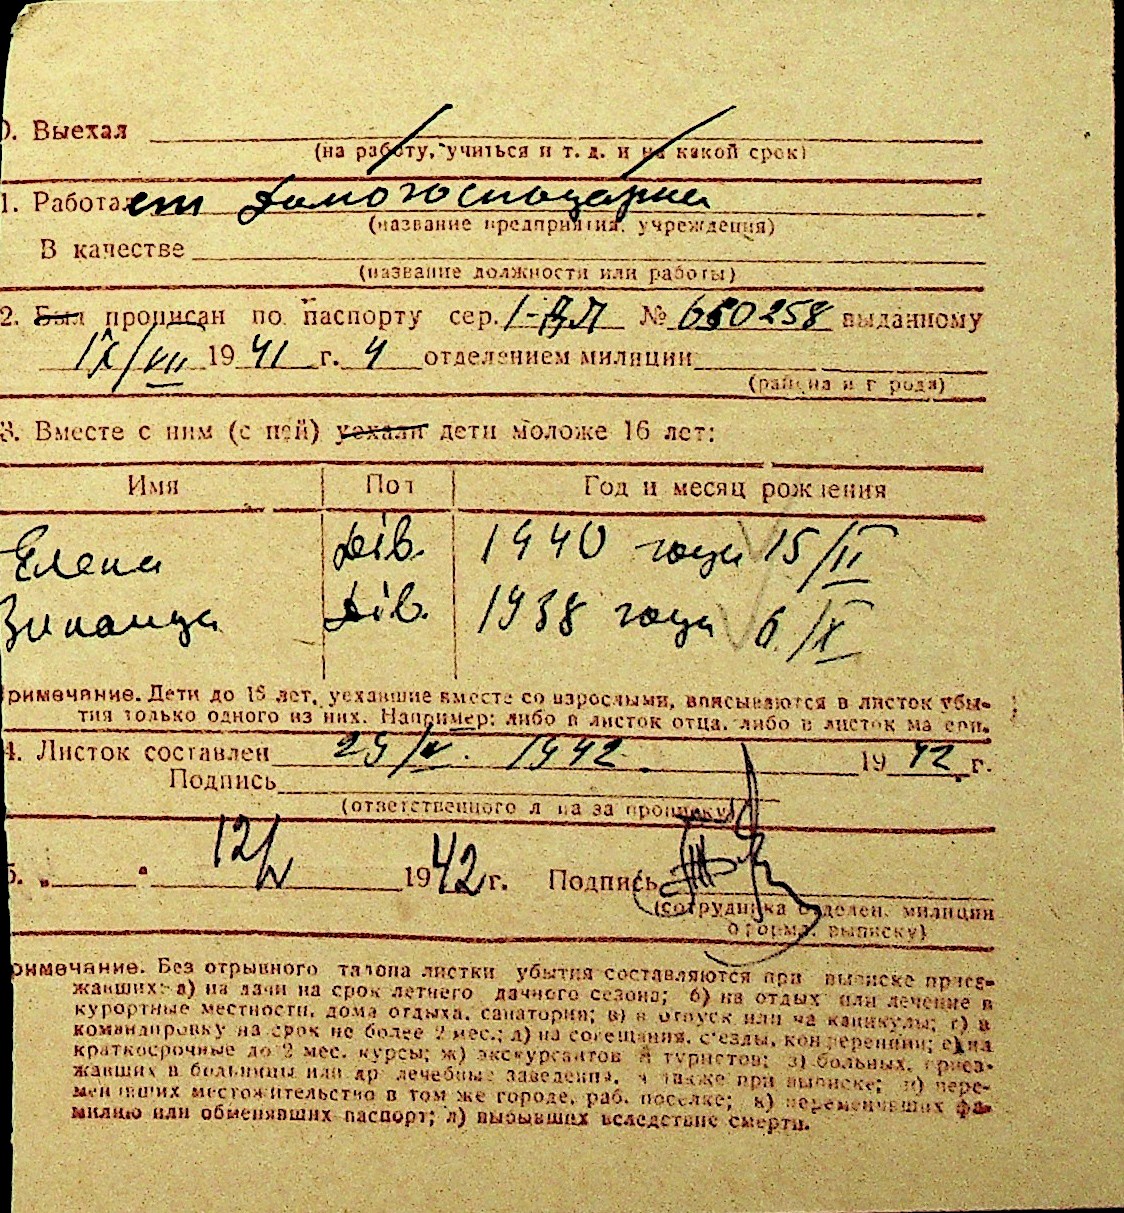 0. Выехал
(на работу, учиться и т. д. и на какой срок)
1. Работает Домогосподарка
(название предприятия, учреждения)
В качестве
(название должности или работы)
2. Был прописан по паспорту сер. I-ВЛ № 650258 выданному
IX/VII 1941 г. 4 отделением милиции
(района и города)
3. Вместе с ним (с ней) уехали дети моложе 16 лет:
Имя Пол Год и месяц рождения
Елена Дів. 1940 года 15/II
Зинаида Дів. 1938 года 6/X
римечание. Дети до 16 лет, уехавшие вместе со взрослыми, вписываются в листок убы-
тия только одного из них. Например: либо в листок отца, либо в листок матери.
4. Листок составлен 29/IV. 1942. 1942 г.
Подпись
(ответственного лица за прописку)
5. „ “ 12/V 1942 г. Подпись
(сотрудника отделен. милиции
оформ. выписку)
римечание. Без отрывного талона листки убытия составляются при выписке приез-
жавших: а) на дачи на срок летнего дачного сезона; б) на отдых или лечение в
курортные местности, дома отдыха, санатории; в) в отпуск или на каникулы; г) в
командировку на срок не более 2 мес.; д) на совещания, съезды, конференции; е) на
краткосрочные до 2 мес. курсы; ж) экскурсантов и туристов; з) больных, приез-
жавших в больницы или др лечебные заведения, а также при выписке; и) пере-
менивших местожительство в том же городе, раб. поселке; к) переменивших фа-
милию или обменявших паспорт; л) выбывших вследствие смерти.